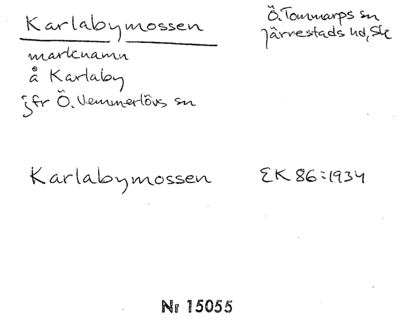 Karlabymossen
Ö. Tommarps sn
Järrestads hd, Sk
marknamn
å Karlaby
jfr Ö. Vemmerlövs sn
Karlabymossen
EK 86:1934
Nr 15055